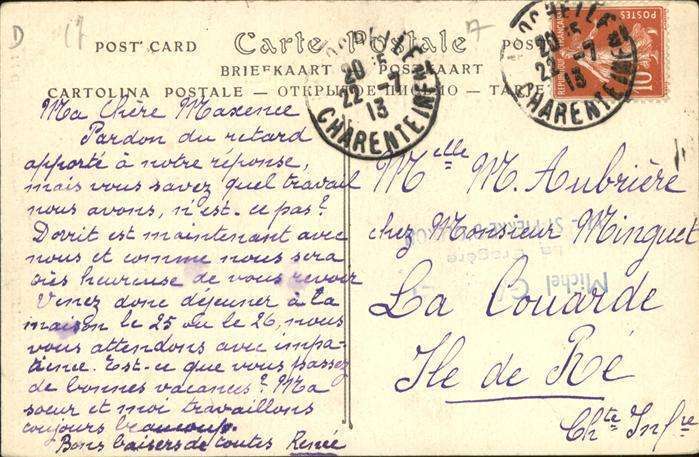 D 17 17
POST CARD Carte Postale POS
BRIEFKAART POSTKAART
CARTOLINA POSTALE — ОТКРЫТОЕ ПИСЬМО — TARJE
ROCHELLE
20 15
22 - 7
13
CHARENTE INFRE
ROCHELLE
20 15
22 - 7
13
CHARENTE INFRE
POSTES
10
Ma Chère Maxence
Pardon du retard
apporté à notre réponse,
mais vous savez quel travail
nous avons, n'est-ce pas?
Dorit est maintenant avec
nous et comme nous sera
très heureuse de vous revoir
Venez donc déjeuner à la
maison le 25 ou le 26, nous
vous attendons avec impa-
tience. Est-ce que vous passez
de bonnes vacances? Ma
soeur et moi travaillons
toujours beaucoup.
Bons baisers de toutes Renée
Melle M. Aubrière
chez Monsieur Minguet
La Couarde
Ile de Ré
Chte Infre
ST PIERRE
La
Michel